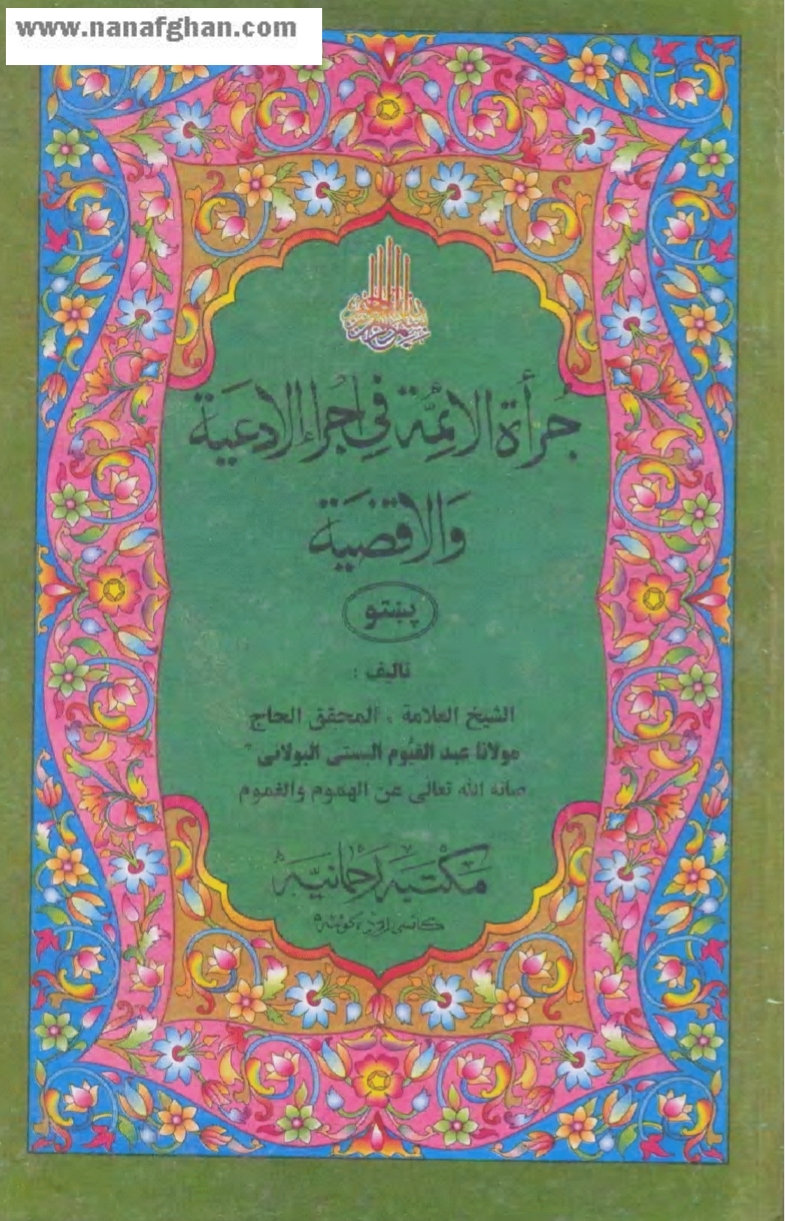 www.nanafghan.com
جُرأة الائمّة في اجراء الادعية
والاقضية
پښتو
تاليف :
الشيخ العلامة ، المحقق الحاج
مولانا عبد القيُّوم السنى البولانى
صانه الله تعالى عن الهموم والغموم
مكتبه رحمانيه
كانسى روډ كوئٹه